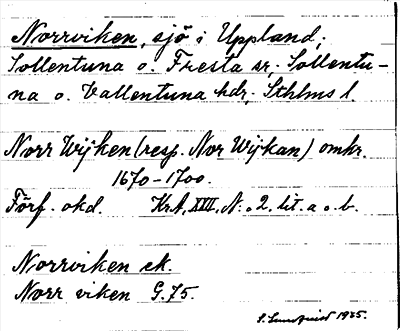 Norrviken, sjö i Uppland;
Sollentuna o. Fresta sr; Sollentu-
na o. Vallentuna hdr; Sthlms l.
Norr Wijken (resp. Nor Wijkan) omkr.
1670-1700.
Förf. okd. KrA, XVIII, N:o 2. lit. a o. b.
Norrviken ek.
Norr viken G.75.
S. Lundqvist 1935.